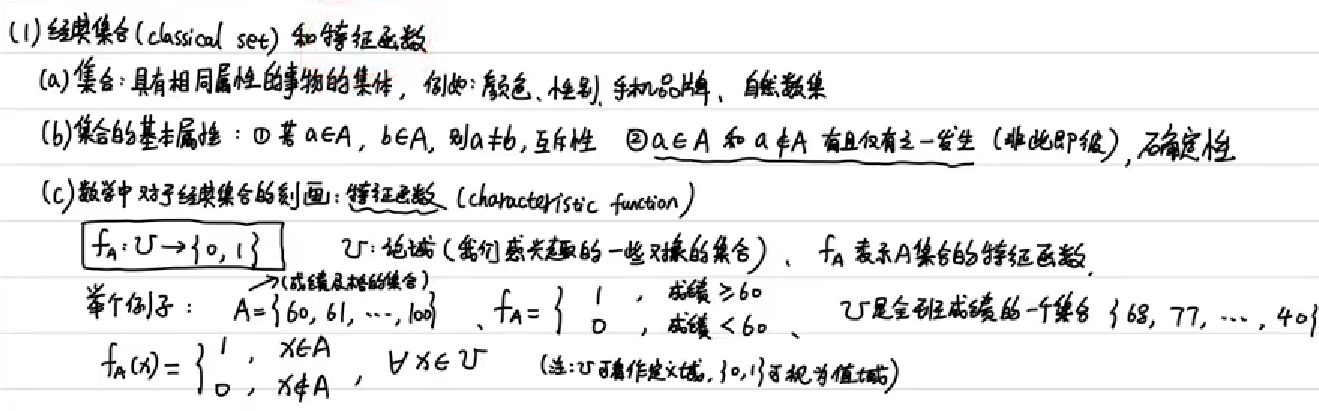 (1) 经典集合(classical set) 和特征函数
(a) 集合：具有相同属性的事物的集体，例如：颜色、性别、手机品牌、自然数集
(b) 集合的基本属性：① 若 a∈A, b∈A, 则a≠b, 互斥性 ② a∈A 和 a∉A 有且仅有之一发生 (非此即彼), 确定性
(c) 数学中对于经典集合的刻画：特征函数 (characteristic function)
f_A: U→{0,1} U: 论域 (我们感兴趣的一些对象的集合)、f_A 表示A集合的特征函数.
→(成绩及格的集合)
举个例子： A={60, 61, ⋯, 100}、f_A = { 1, 成绩≥60 0, 成绩<60、 U是全班成绩的一个集合 {68, 77, ⋯, 40}
f_A(x) = { 1, x∈A 0, x∉A, ∀x∈U (注: U可看作定义域, {0,1}可视为值域)